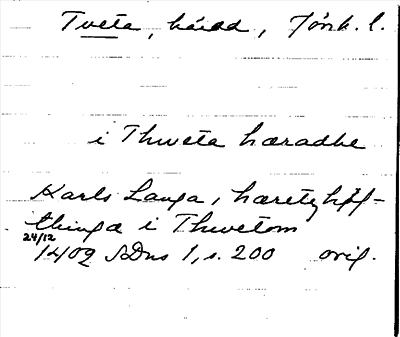 Tveta, härad, Jönk. l.
i Thweta hæradhe
Karls Langa, hæretzhøf-
thinga i Thwetom
24/12
1409 SDns 1, s. 200 orig.